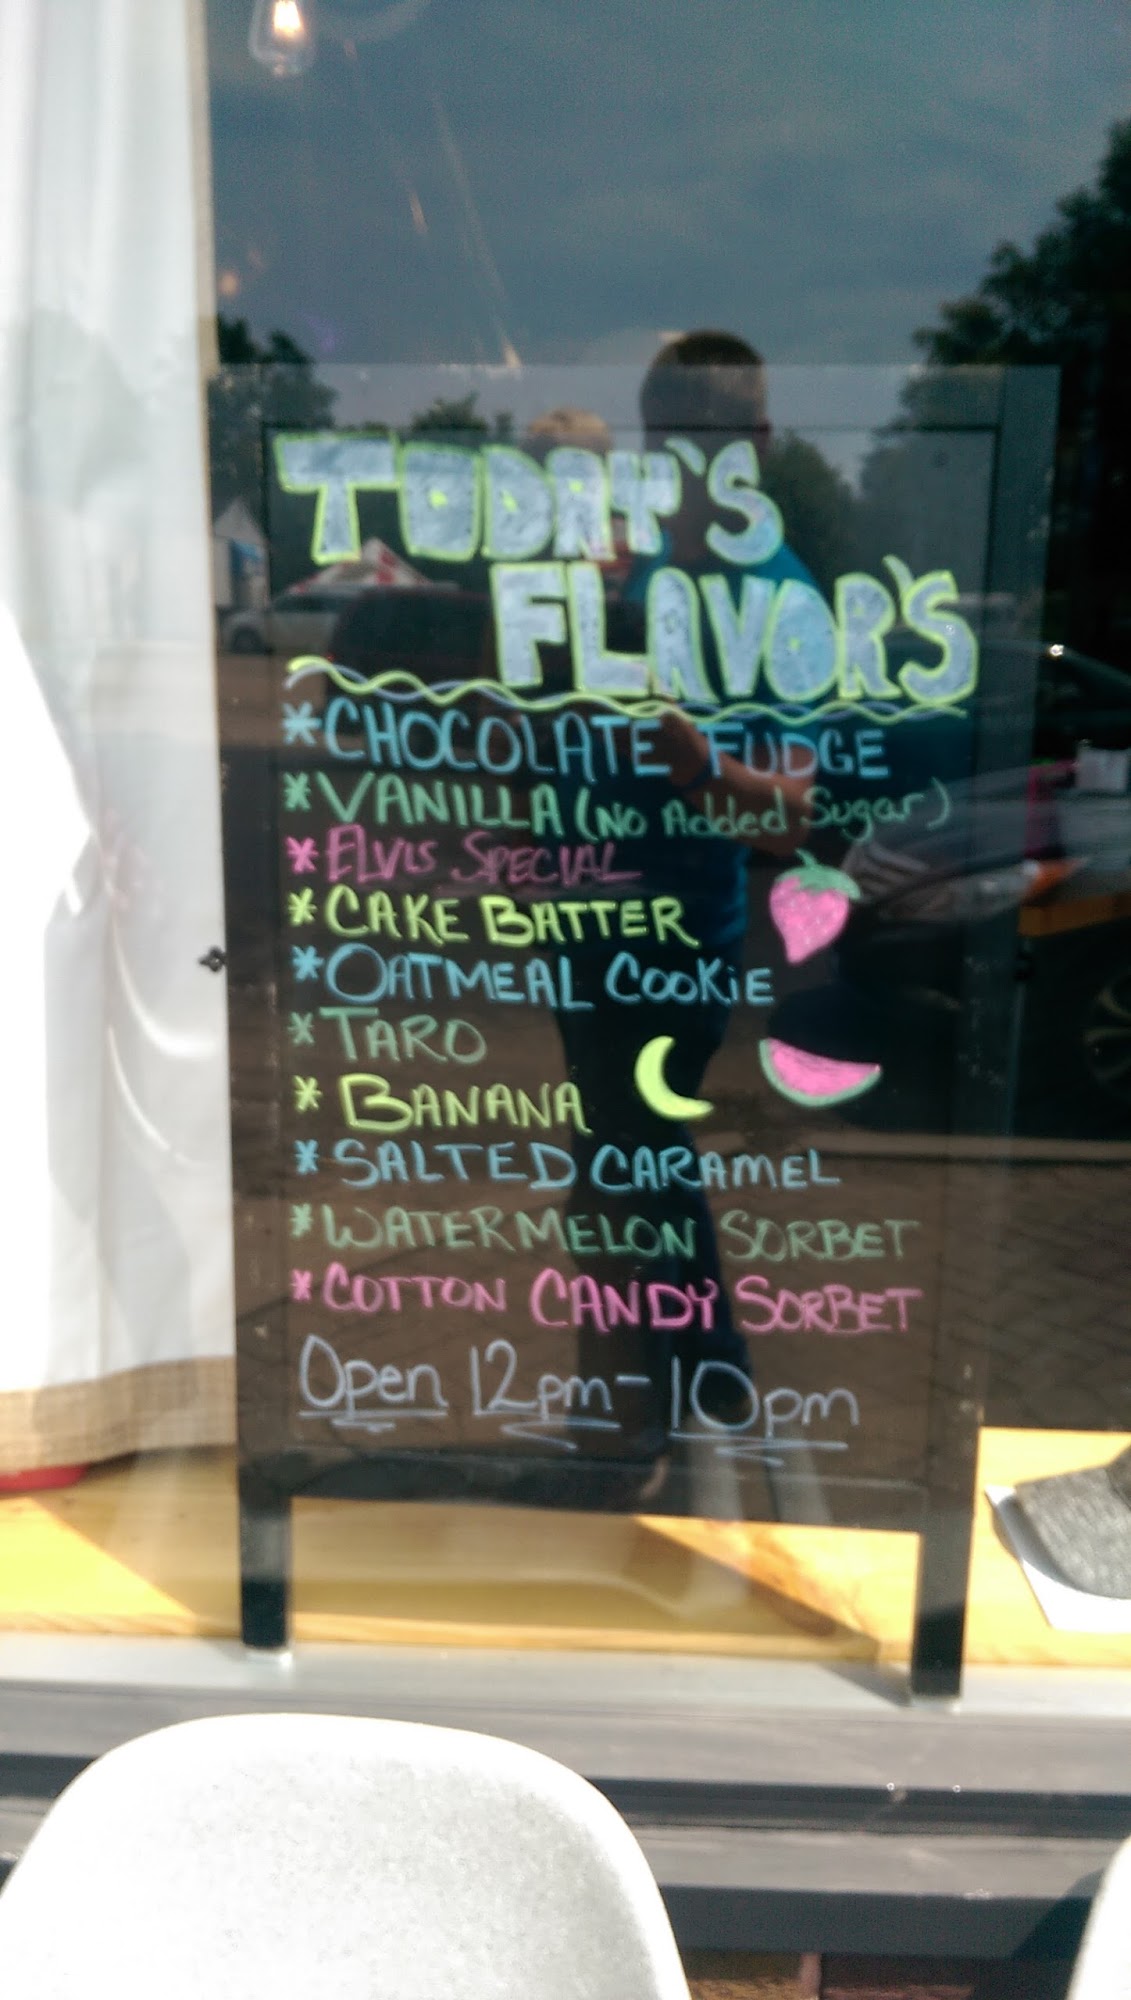 TODAY'S
FLAVOR'S
*CHOCOLATE FUDGE
*VANILLA (No Added Sugar)
*ELVIS SPECIAL
*CAKE BATTER
*OATMEAL COOKiE
*TARO
*BANANA
*SALTED CARAMEL
*WATERMELON SORBET
*COTTON CANDY SORBET
Open 12pm-10pm